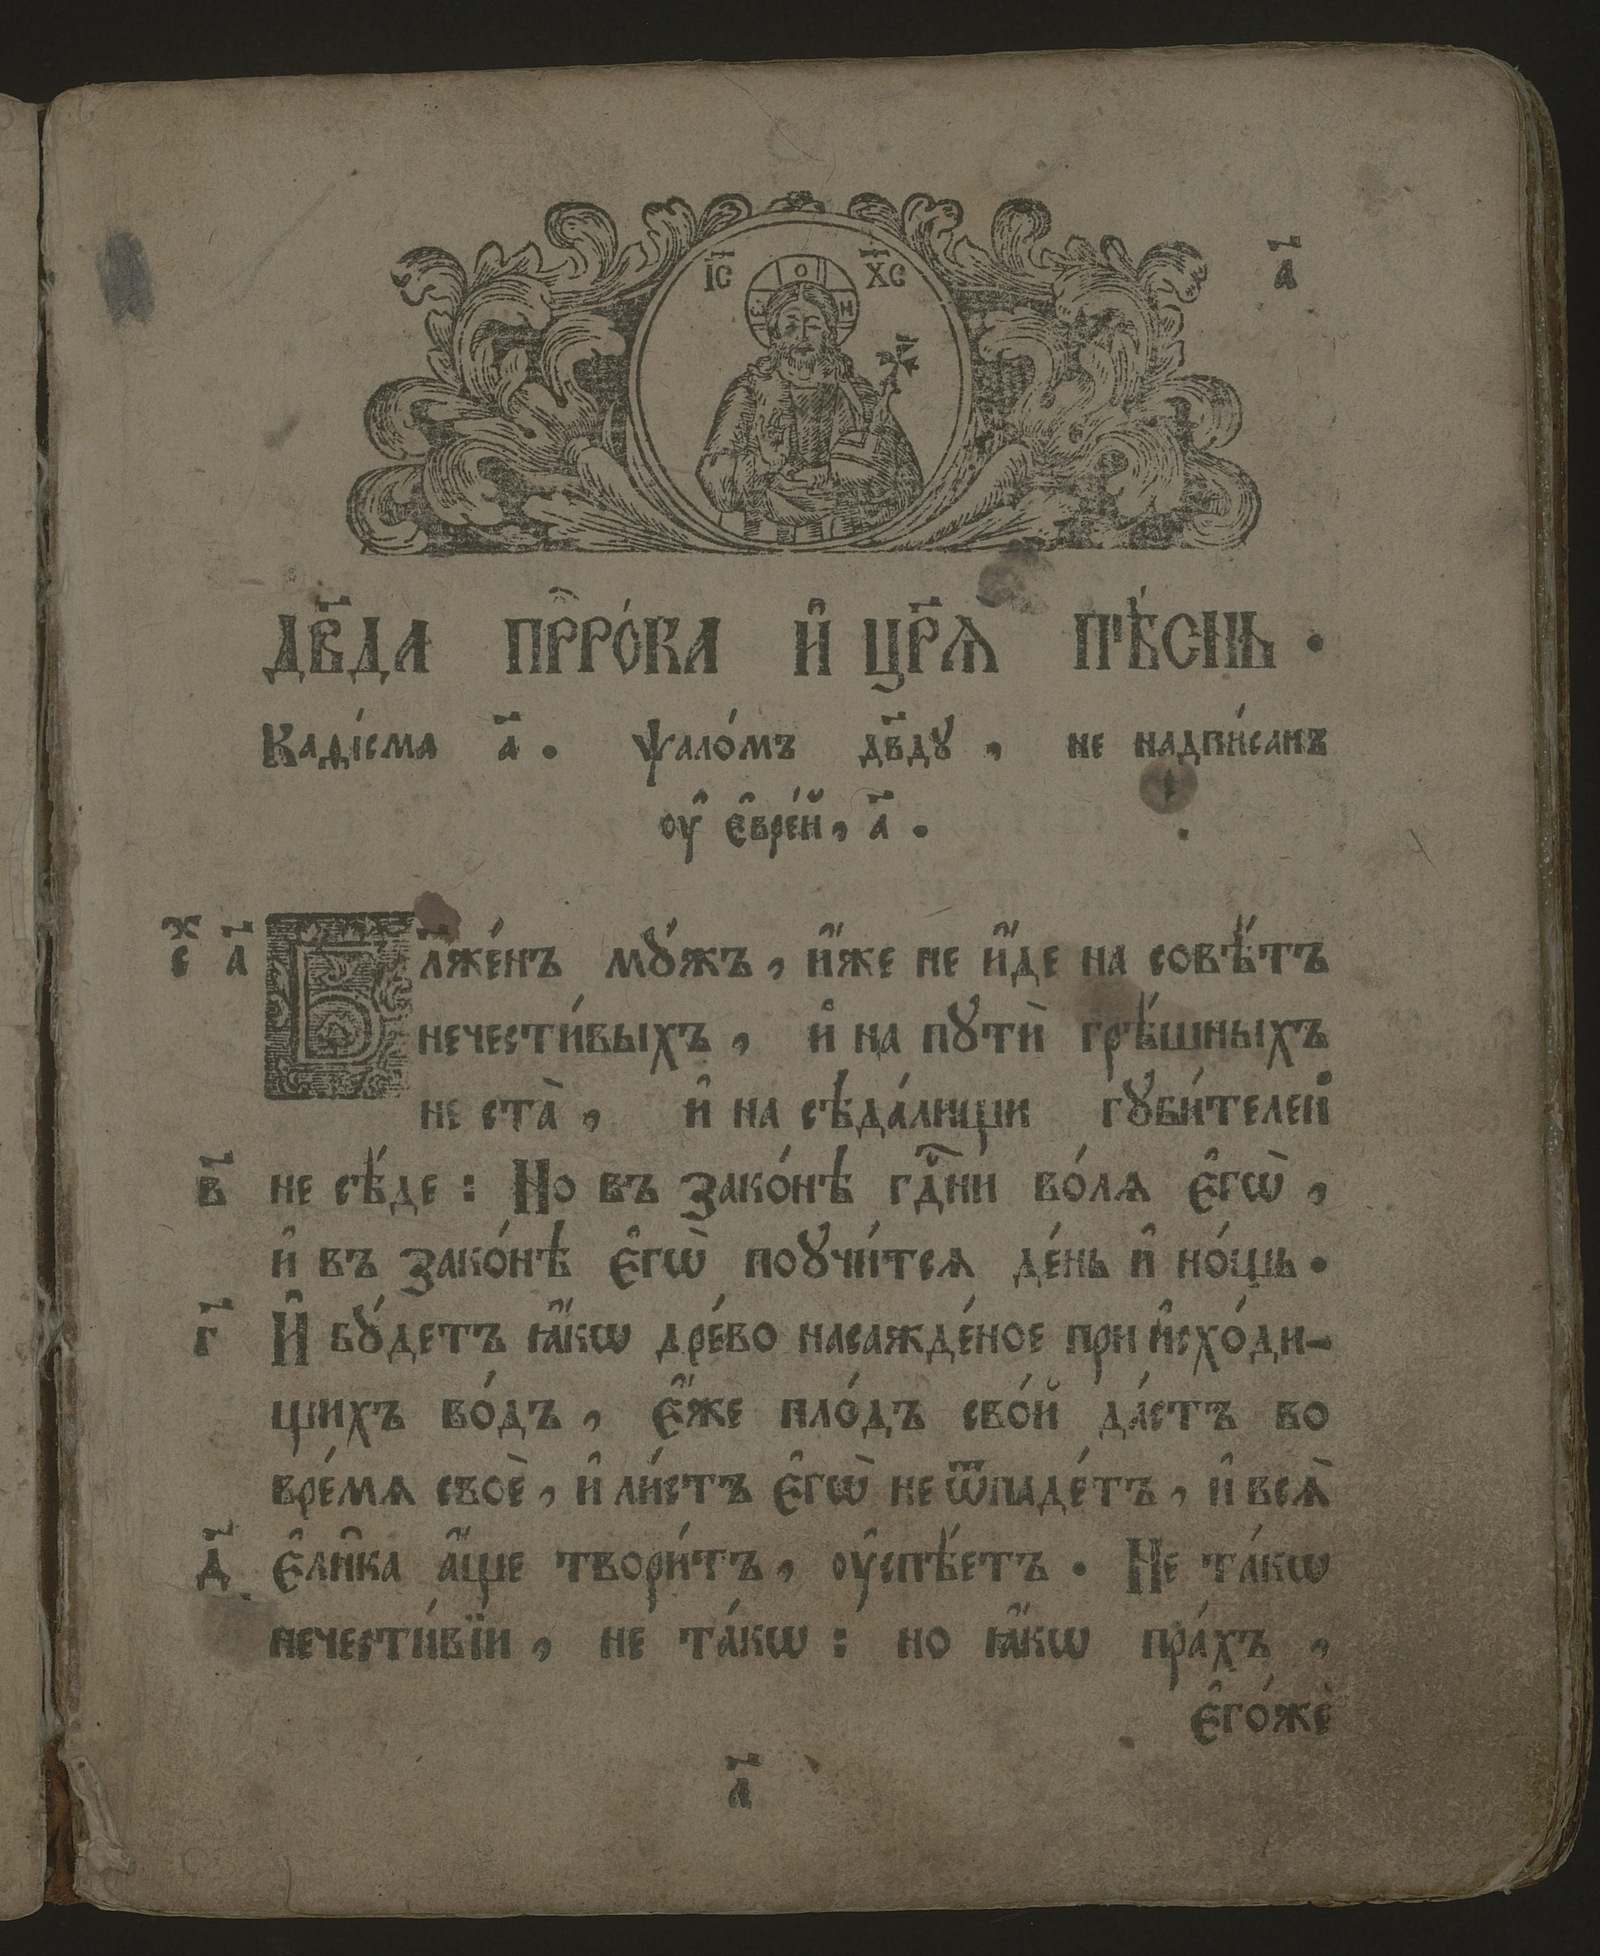 І҃С Х҃С
Ѡ О Н
а҃
ДВ҃ДА ПРⷪ҇РО́КА И҆ ЦР҃Ѧ ПѢ́СНЬ.
Каді́сма а҃. Ѱало́мъ дв҃дꙋ, не надпи́санъ
оу҆ є҆вре́й, а҃.
сⷯ а҃ Бл҃же́нъ мꙋ́жъ, и҆́же не и҆́де на совѣ́тъ
нечести́выхъ, и҆ на пꙋтѝ грѣ́шныхъ
не ста̀, и҆ на сѣда́лищи гꙋби́телей
в҃ не сѣ́де: Но въ зако́нѣ гдⷭ҇ни во́лѧ є҆гѡ̀,
и҆ въ зако́нѣ є҆гѡ̀ поꙋчи́тсѧ де́нь и҆ но́щь.
г҃ И҆ бꙋ́детъ ꙗ҆́кѡ дре́во насажде́ное при и҆схо́ди-
щихъ во́дъ, є҆́же пло́дъ сво́й да́стъ во
вре́мѧ своѐ, и҆ ли́стъ є҆гѡ̀ не ѿпаде́тъ, и҆ всѧ̀
д҃ є҆ли҆ка а҆́ще твори́тъ, оу҆спѣ́етъ. Не та́кѡ
нечести́вїи, не та́кѡ: но ꙗ҆́кѡ пра́хъ,
є҆го́же
а҃